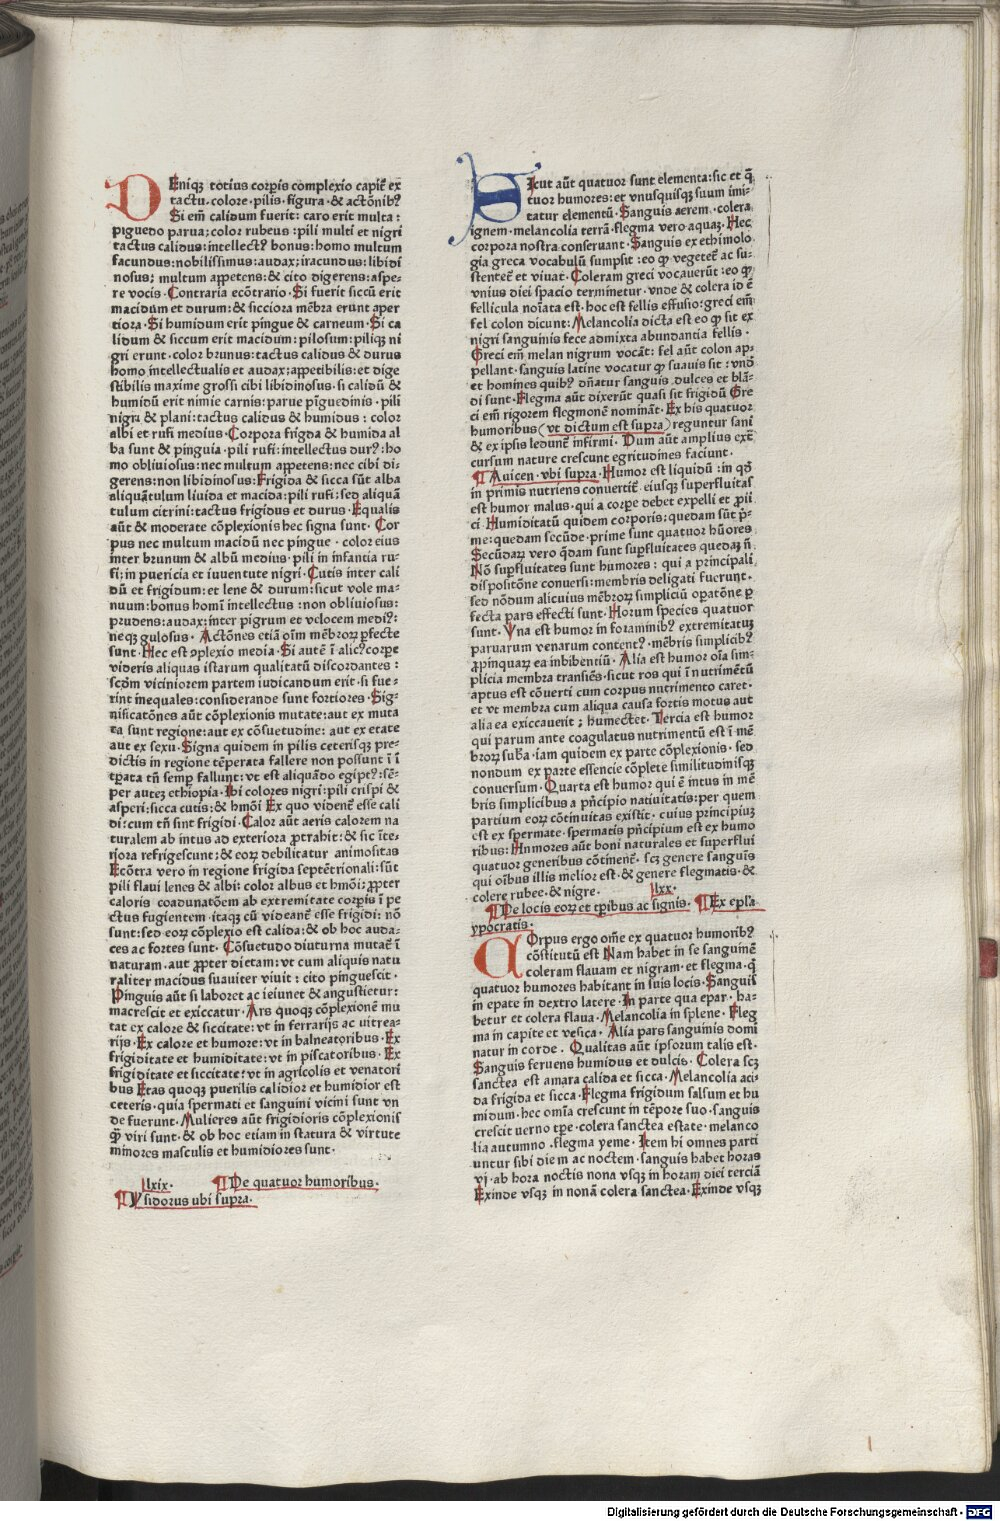 DEniqꝫ totius corꝑis complexio capit̃ ex
tactu·colore·pilis·figura·& actõnibꝰ
Si em̃ calidum fuerit: caro erit multa:
piguedo parua; color rubeus: pili multi et nigri
tactus calidus: intellectꝰ bonus: homo multum
facundus: nobilissimus: audax: iracundus: libidi
nosus; multum appetens: & cito digerens: aspe-
re vocis·Contraria ecõtrario·Si fuerit siccũ erit
macidum et durum: & sicciora mẽbra erunt aper
tiora·Si humidum erit pingue & carneum·Si ca
lidum & siccum erit macidum: pilosum: piliqꝫ ni
gri erunt·color brunus: tactus calidus & durus
homo intellectualis et audax: appetibilis: et dige
stibilis maxime grossi cibi libidinosus·si calidũ &
humidũ erit nimie carnis: parue pinguedinis·pili
nigri & plani: tactus calidus & humidus: color
albi et rufi medius·Corpora frigda & humida al
ba sunt & pinguia·pili rufi: intellectus durꝰ: ho
mo obliuiosus: nec multum appetens: nec cibi di-
gerens: non libidinosus: Frigida & sicca sũt alba
aliquãtulum liuida et macida: pili rufi: sed aliquã
tulum citrini: tactus frigidus et durus·Equalis
aũt & moderate cõplexionis hec signa sunt·Cor
pus nec multum macidũ nec pingue·color eius
inter brunum & albũ medius·pili in infantia ru-
fi: in puericia et iuuentute nigri·Cutis inter cali
dũ et frigidum: et lene & durum: sicut vole ma-
nuum: bonus homi intellectus: non obliuiosus:
prudens: audax: inter pigrum et velocem mediꝰ:
neqꝫ gulosus·Actões etiã oĩm mẽbroꝝ ꝑfecte
sunt·Hec est ꝯplexio media·Si autẽ ĩ alicꝰ corpe
videris aliquas istarum qualitatũ discordantes:
scd̃m viciniorem partem iudicandum erit·si fue-
rint inequales: considerande sunt fortiores·Sig-
nificatões aũt cõplexionis mutate: aut ex muta
ta sunt regione: aut ex cõsuetudine: aut ex etate
aut ex sexu·Signa quidem in pilis ceterisqꝫ pre-
dictis in regione tẽperata fallere non possunt ĩ ĩ
tꝑata tñ semꝑ fallunt: vt est aliquãdo egiptꝰ: sẽ-
per auteꝫ ethiopia·Ibi colores nigri: pili crispi &
asperi: sicca cutis: & hmõi Ex quo viden̄ esse cali
di: cum tñ sint frigidi·Calor aũt aeris calorem na
turalem ab intus ad exteriora ꝓtrahit: & sic ĩte-
riora refrigescunt: & eoꝝ debilitatur animositas
Ecõtra vero in regione frigida septẽtrionali: sũt
pili flaui lenes & albi: color albus et hmõi: ꝓpter
caloris coadunatõem ab extremitate corꝑis ĩ pe
ctus fugientem·itaqꝫ cũ videan̄ esse frigidi: nõ
sunt: sed eoꝝ cõplexio est calida: & ob hoc auda-
ces ac fortes sunt·Cõsuetudo diuturna mutat̃ ĩ
naturam·aut ꝓpter dietam: vt cum aliquis natu
raliter macidus suauiter viuit: cito pinguescit·
Pinguis aũt si laboret ac ieiunet & angustietur:
macrescit et exiccatur·Ars quoqꝫ cõplexionẽ mu
tat ex calore & siccitate: vt in ferrarijs ac vitrea-
rijs·Ex calore et humore: vt in balneatoribus·Ex
frigiditate et humiditate: vt in piscatoribus·Ex
frigiditate et siccitate: vt in agricolis et venatori
bus Etas quoqꝫ puerilis calidior et humidior est
ceteris·quia spermati et sanguini vicini sunt vn
de fuerunt·Mulieres aũt frigidioris cõplexionis
ꝙ̃ viri sunt·& ob hoc etiam in statura & virtute
minores masculis et humidiores sunt·
lxix· ¶De quatuor humoribus·
¶Ysidorus ubi supra·
SIcut aũt quatuor sunt elementa: sic et q̃
tuor humores: et vnusquisqꝫ suum imi-
tatur elementũ·Sanguis aerem·colera
ignem·melancolia terrã·flegma vero aquaꝫ·Hec
corpora nostra conseruant·Sanguis ex ethimolo
gia greca vocabulũ sumpsit: eo ꝙ vegetet̃ ac su-
stentet̃ et viuat·Coleram greci vocauerũt: eo ꝙ
vnius diei spacio terminetur·vnde & colera id ẽ
fellicula noĩata est·hoc est fellis effusio: greci em̃
fel colon dicunt: Melancolia dicta est eo ꝙ sit ex
nigri sanguinis fece admixta abundantia fellis·
Greci em̃ melan nigrum vocãt: fel aũt colon ap-
pellant·sanguis latine vocatur ꝙ suauis sit: vnd̃
et homines quibꝰ dñatur sanguis·dulces et blã-
di sunt·Flegma aũt dixerũt quasi sit frigidũ Gre
ci em̃ rigorem flegmonẽ nominãt·Ex his quatuor
humoribus (vt dictum est supra) reguntur sani
& ex ipsis ledun̄t infirmi·Dum aũt amplius ext̃
cursum nature crescunt egritudines faciunt·
¶Auicen·vbi supra·Humor est liquidũ: in qd̃
in primis nutriens conuertit̃ eiusqꝫ superfluitas
est humor malus·qui a corpe debet expelli et ꝓii
ci·Humiditatũ quidem corporis: quedam sũt p̃-
me: quedam secũde·prime sunt quatuor hũores
Secũdaꝝ vero q̃dam sunt suꝑfluitates quedaꝫ ñ
Nõ suꝑfluitates sunt humores: qui a principali
dispositõne conuersi: membris deligati fuerunt·
sed nõdum alicuius mẽbroꝝ simpliciũ oꝑatõne ꝑ
fecta pars effecti sunt·Horum species quatuor
sunt·Vna est humor in foraminibꝰ extremitatuꝫ
paruarum venarum contentꝰ·mẽbris simplicibꝰ
ꝓpinquaꝝ ea inbibentiũ·Alia est humor oĩa sim-
plicia membra transiẽs·sicut ros qui ĩ nutrimẽtũ
aptus est cõuerti cum corpus nutrimento caret·
et vt membra cum aliqua causa fortis motus aut
alia ea exiccauerit; humectet·Tercia est humor
qui parum ante coagulatus nutrimentũ est ĩ mẽ
broꝝ sub̃a·iam quidem ex parte cõplexionis·sed
nondum ex parte essencie cõplete similitudinisqꝫ
conuersum·Quarta est humor qui ẽ intus in mẽ
bris simplicibus a pñcipio natiuitatis: per quem
partium eoꝝ cõtinuitas existit·cuius principiuꝫ
est ex spermate·spermatis pñcipium est ex humo
ribus: Humores aũt boni naturales et superflui
quatuor generibus cõtinen̄t·scꝫ genere sanguis
qui oĩbus illis melior est·& genere flegmatis·&
colere rubee·& nigre· lxx·
¶De locis eoꝝ et tꝑibus ac signis·¶Ex epl̃a
ypocratis·
COrpus ergo om̃e ex quatuor humoribꝰ
cõstitutũ est Nam habet in se sanguinẽ
coleram flauam et nigram·et flegma·q̃
quatuor humores habitant in suis locis·Sanguis
in epate in dextro latere·In parte qua epar·ha-
betur et colera flaua·Melancolia in splene·Fleg
ma in capite et vesica·Alia pars sanguinis domi
natur in corde·Qualitas aũt ipsorum talis est·
Sanguis feruens humidus et dulcis·Colera scꝫ
sanctea est amara calida et sicca·Melancolia aci-
da frigida et sicca·Flegma frigidum salsum et hu
midum·hec omĩa crescunt in tẽpore suo·sanguis
crescit verno tꝑe·colera sanctea estate·melanco
lia autumno·flegma yeme·Item hi omnes parti
untur sibi diem ac noctem·sanguis habet horas
vj·ab hora noctis nona vsqꝫ in horam diei terciã
Exinde vsqꝫ in nonã colera sanctea·Exinde vsqꝫ
Digitalisierung gefördert durch die Deutsche Forschungsgemeinschaft · DFG